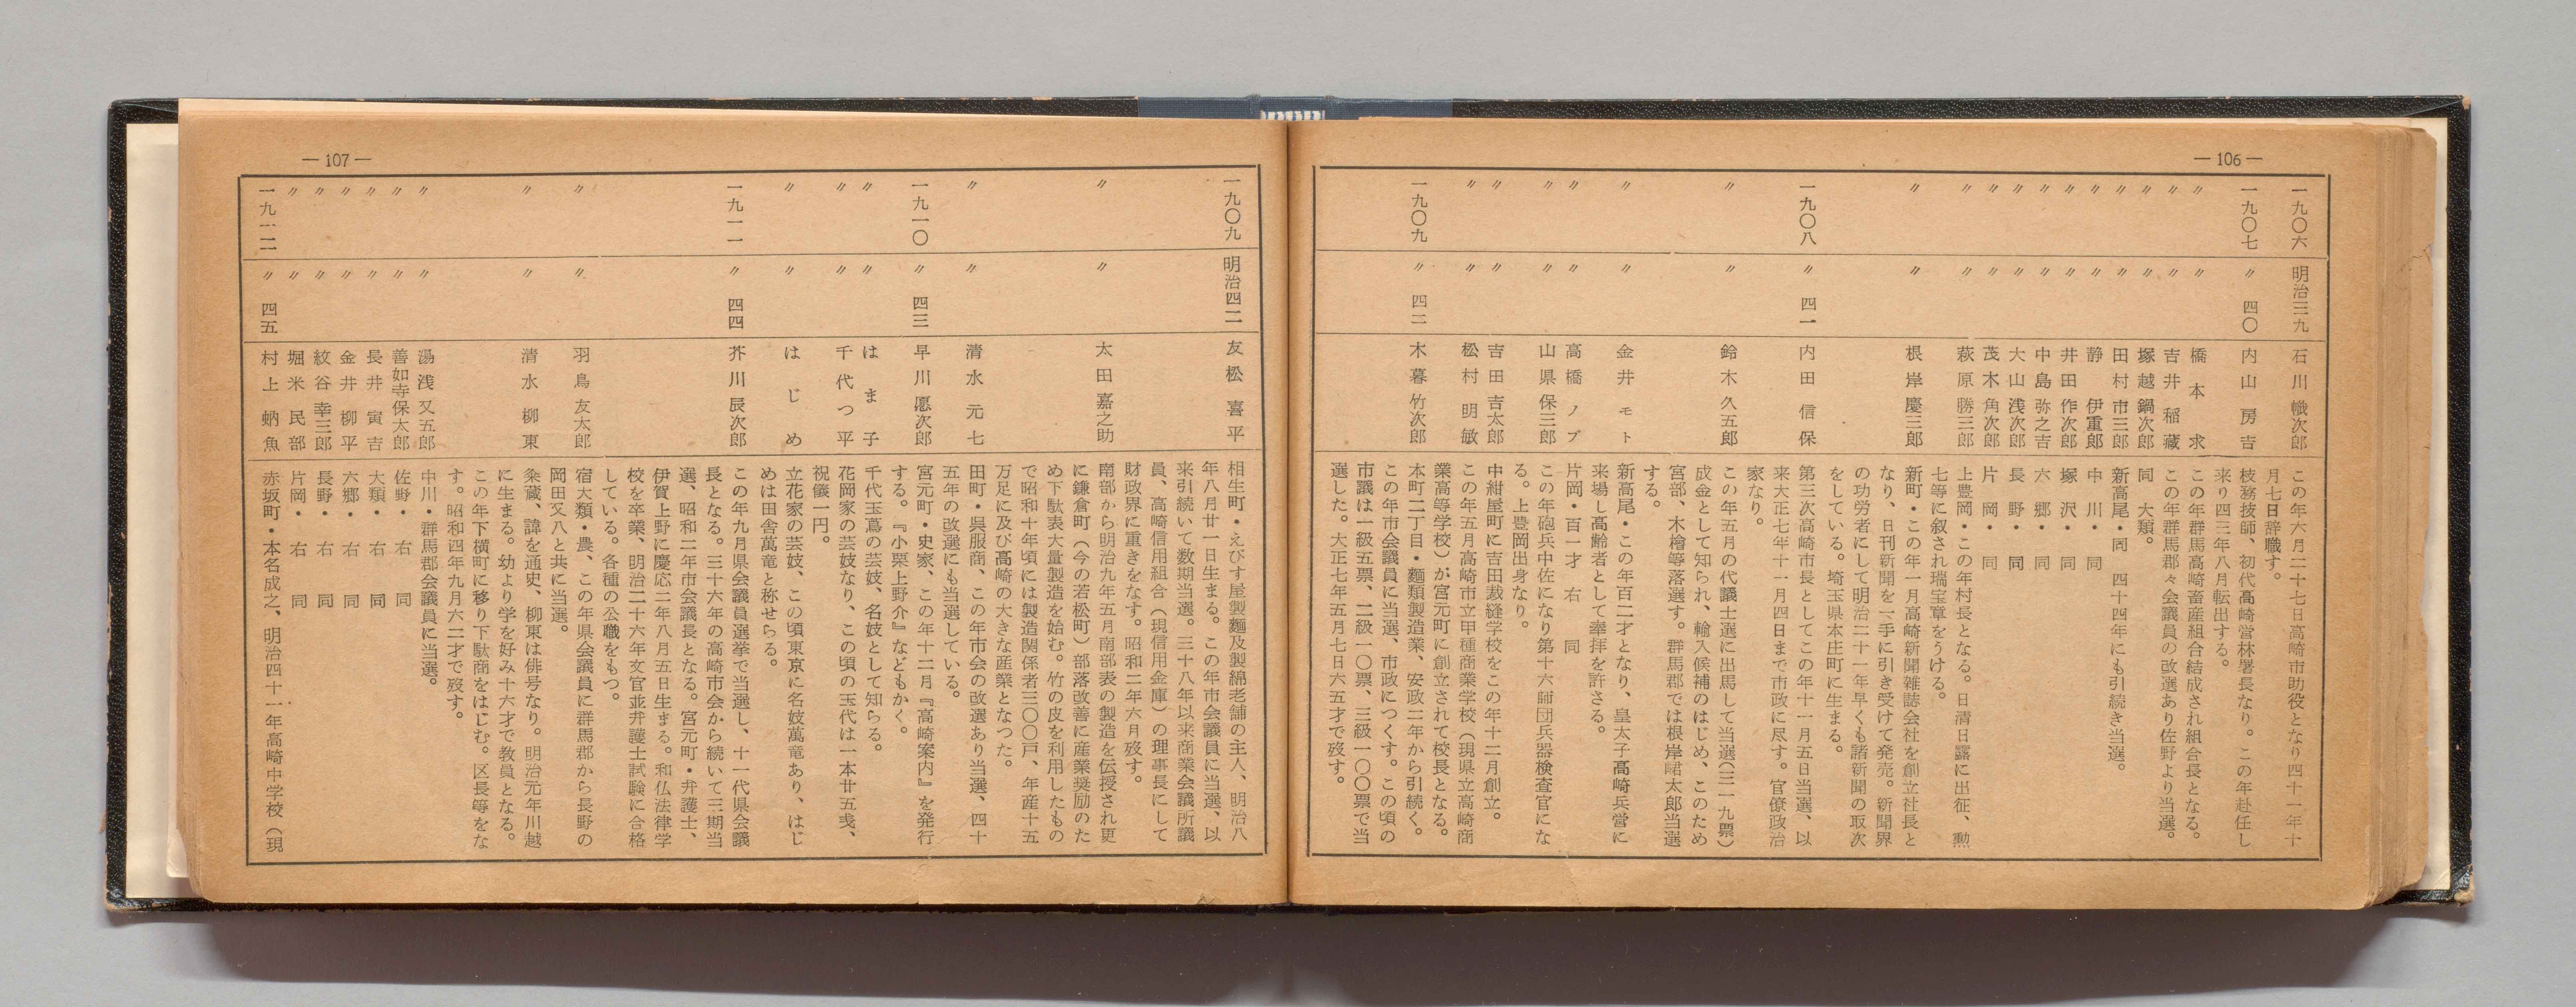 —106—
一九〇六 明治三九 石川幟次郎 この年六月二十七日高崎市助役となり四十一年十
月七日辞職す。
一九〇七 〃四〇 内山房吉 枝務技師、初代高崎営林署長なり。この年赴任し
来り四三年八月転出する。
〃 〃 橋本求 この年群馬高崎畜産組合結成され組合長となる。
〃 〃 吉井稲蔵 この年群馬郡々会議員の改選あり佐野より当選。
〃 〃 塚越鍋次郎 同 大類。
〃 〃 田村市三郎 新高尾・同 四十四年にも引続き当選。
〃 〃 静伊重郎 中川・同
〃 〃 井田作次郎 塚沢・同
〃 〃 中島弥之吉 六郷・同
〃 〃 大山浅次郎 長野・同
〃 〃 茂木角次郎 片岡・同
〃 〃 萩原勝三郎 上豊岡・この年村長となる。日清日露に出征、勲
七等に叙され瑞宝章をうける。
〃 〃 根岸慶三郎 新町・この年一月高崎新聞雑誌会社を創立社長と
なり、日刊新聞を一手に引き受けて発売。新聞界
の功労者にして明治二十一年早くも諸新聞の取次
をしている。埼玉県本庄町に生まる。
一九〇八 〃四一 内田信保 第三次高崎市長としてこの年十一月五日当選、以
来大正七年十一月四日まで市政に尽す。官僚政治
家なり。
〃 〃 鈴木久五郎 この年五月の代議士選に出馬して当選(三一九票)
成金として知られ、輸入候補のはじめ、このため
宮部、木檜等落選す。群馬郡では根岸峮太郎当選
する。
〃 〃 金井モト 新高尾・この年百二才となり、皇太子高崎兵営に
来場し高齢者として奉拝を許さる。
〃 〃 高橋ノブ 片岡・百一才 右同
〃 〃 山県保三郎 この年砲兵中佐になり第十六師団兵器検査官にな
る。上豊岡出身なり。
〃 〃 吉田吉太郎 中紺屋町に吉田裁縫学校をこの年十二月創立。
〃 〃 松村明敏 この年五月高崎市立甲種商業学校(現県立高崎商
業高等学校)が宮元町に創立されて校長となる。
一九〇九 〃四二 木暮竹次郎 本町二丁目・麵類製造業、安政二年から引続く。
この年市会議員に当選、市政につくす。この頃の
市議は一級五票、二級一〇票、三級一〇〇票で当
選した。大正七年五月七日六五才で歿す。
—107—
一九〇九 明治四二 友松喜平 相生町・えびす屋製麵及製綿老舗の主人、明治八
年八月廿一日生まる。この年市会議員に当選、以
来引続いて数期当選。三十八年以来商業会議所議
員、高崎信用組合(現信用金庫)の理事長にして
財政界に重きをなす。昭和二年六月歿す。
〃 〃 太田嘉之助 南部から明治九年五月南部表の製造を伝授され更
に鎌倉町(今の若松町)部落改善に産業奨励のた
め下駄表大量製造を始む。竹の皮を利用したもの
で昭和十年頃には製造関係者三〇〇戸、年産十五
万足に及び高崎の大きな産業となつた。
〃 〃 清水元七 田町・呉服商、この年市会の改選あり当選、四十
五年の改選にも当選している。
一九一〇 〃四三 早川愿次郎 宮元町・史家、この年十二月『高崎案内』を発行
する。『小栗上野介』などもかく。
〃 〃 はま子 千代玉蔦の芸妓、名妓として知らる。
〃 〃 千代つ平 花岡家の芸妓なり、この頃の玉代は一本廿五戋、
祝儀一円。
〃 〃 はじめ 立花家の芸妓、この頃東京に名妓萬竜あり、はじ
めは田舎萬竜と称せらる。
一九一一 〃四四 芥川辰次郎 この年九月県会議員選挙で当選し、十一代県会議
長となる。三十六年の高崎市会から続いて三期当
選、昭和二年市会議長となる。宮元町・弁護士、
伊賀上野に慶応二年八月五日生まる。和仏法律学
校を卒業、明治二十六年文官並弁護士試験に合格
している。各種の公職をもつ。
〃 〃 羽鳥友太郎 宿大類・農、この年県会議員に群馬郡から長野の
岡田又八と共に当選。
〃 〃 清水柳東 粂蔵、諱を通史、柳東は俳号なり。明治元年川越
に生まる。幼より学を好み十六才で教員となる。
この年下横町に移り下駄商をはじむ。区長等をな
す。昭和四年九月六二才で歿す。
〃 〃 湯浅又五郎 中川・群馬郡会議員に当選。
〃 〃 善如寺保太郎 佐野・右同
〃 〃 長井寅吉 大類・右同
〃 〃 金井柳平 六郷・右同
〃 〃 紋谷幸三郎 長野・右同
〃 〃 堀米民部 片岡・右同
一九一二 〃四五 村上蚋魚 赤坂町・本名成之、明治四十一年高崎中学校(現